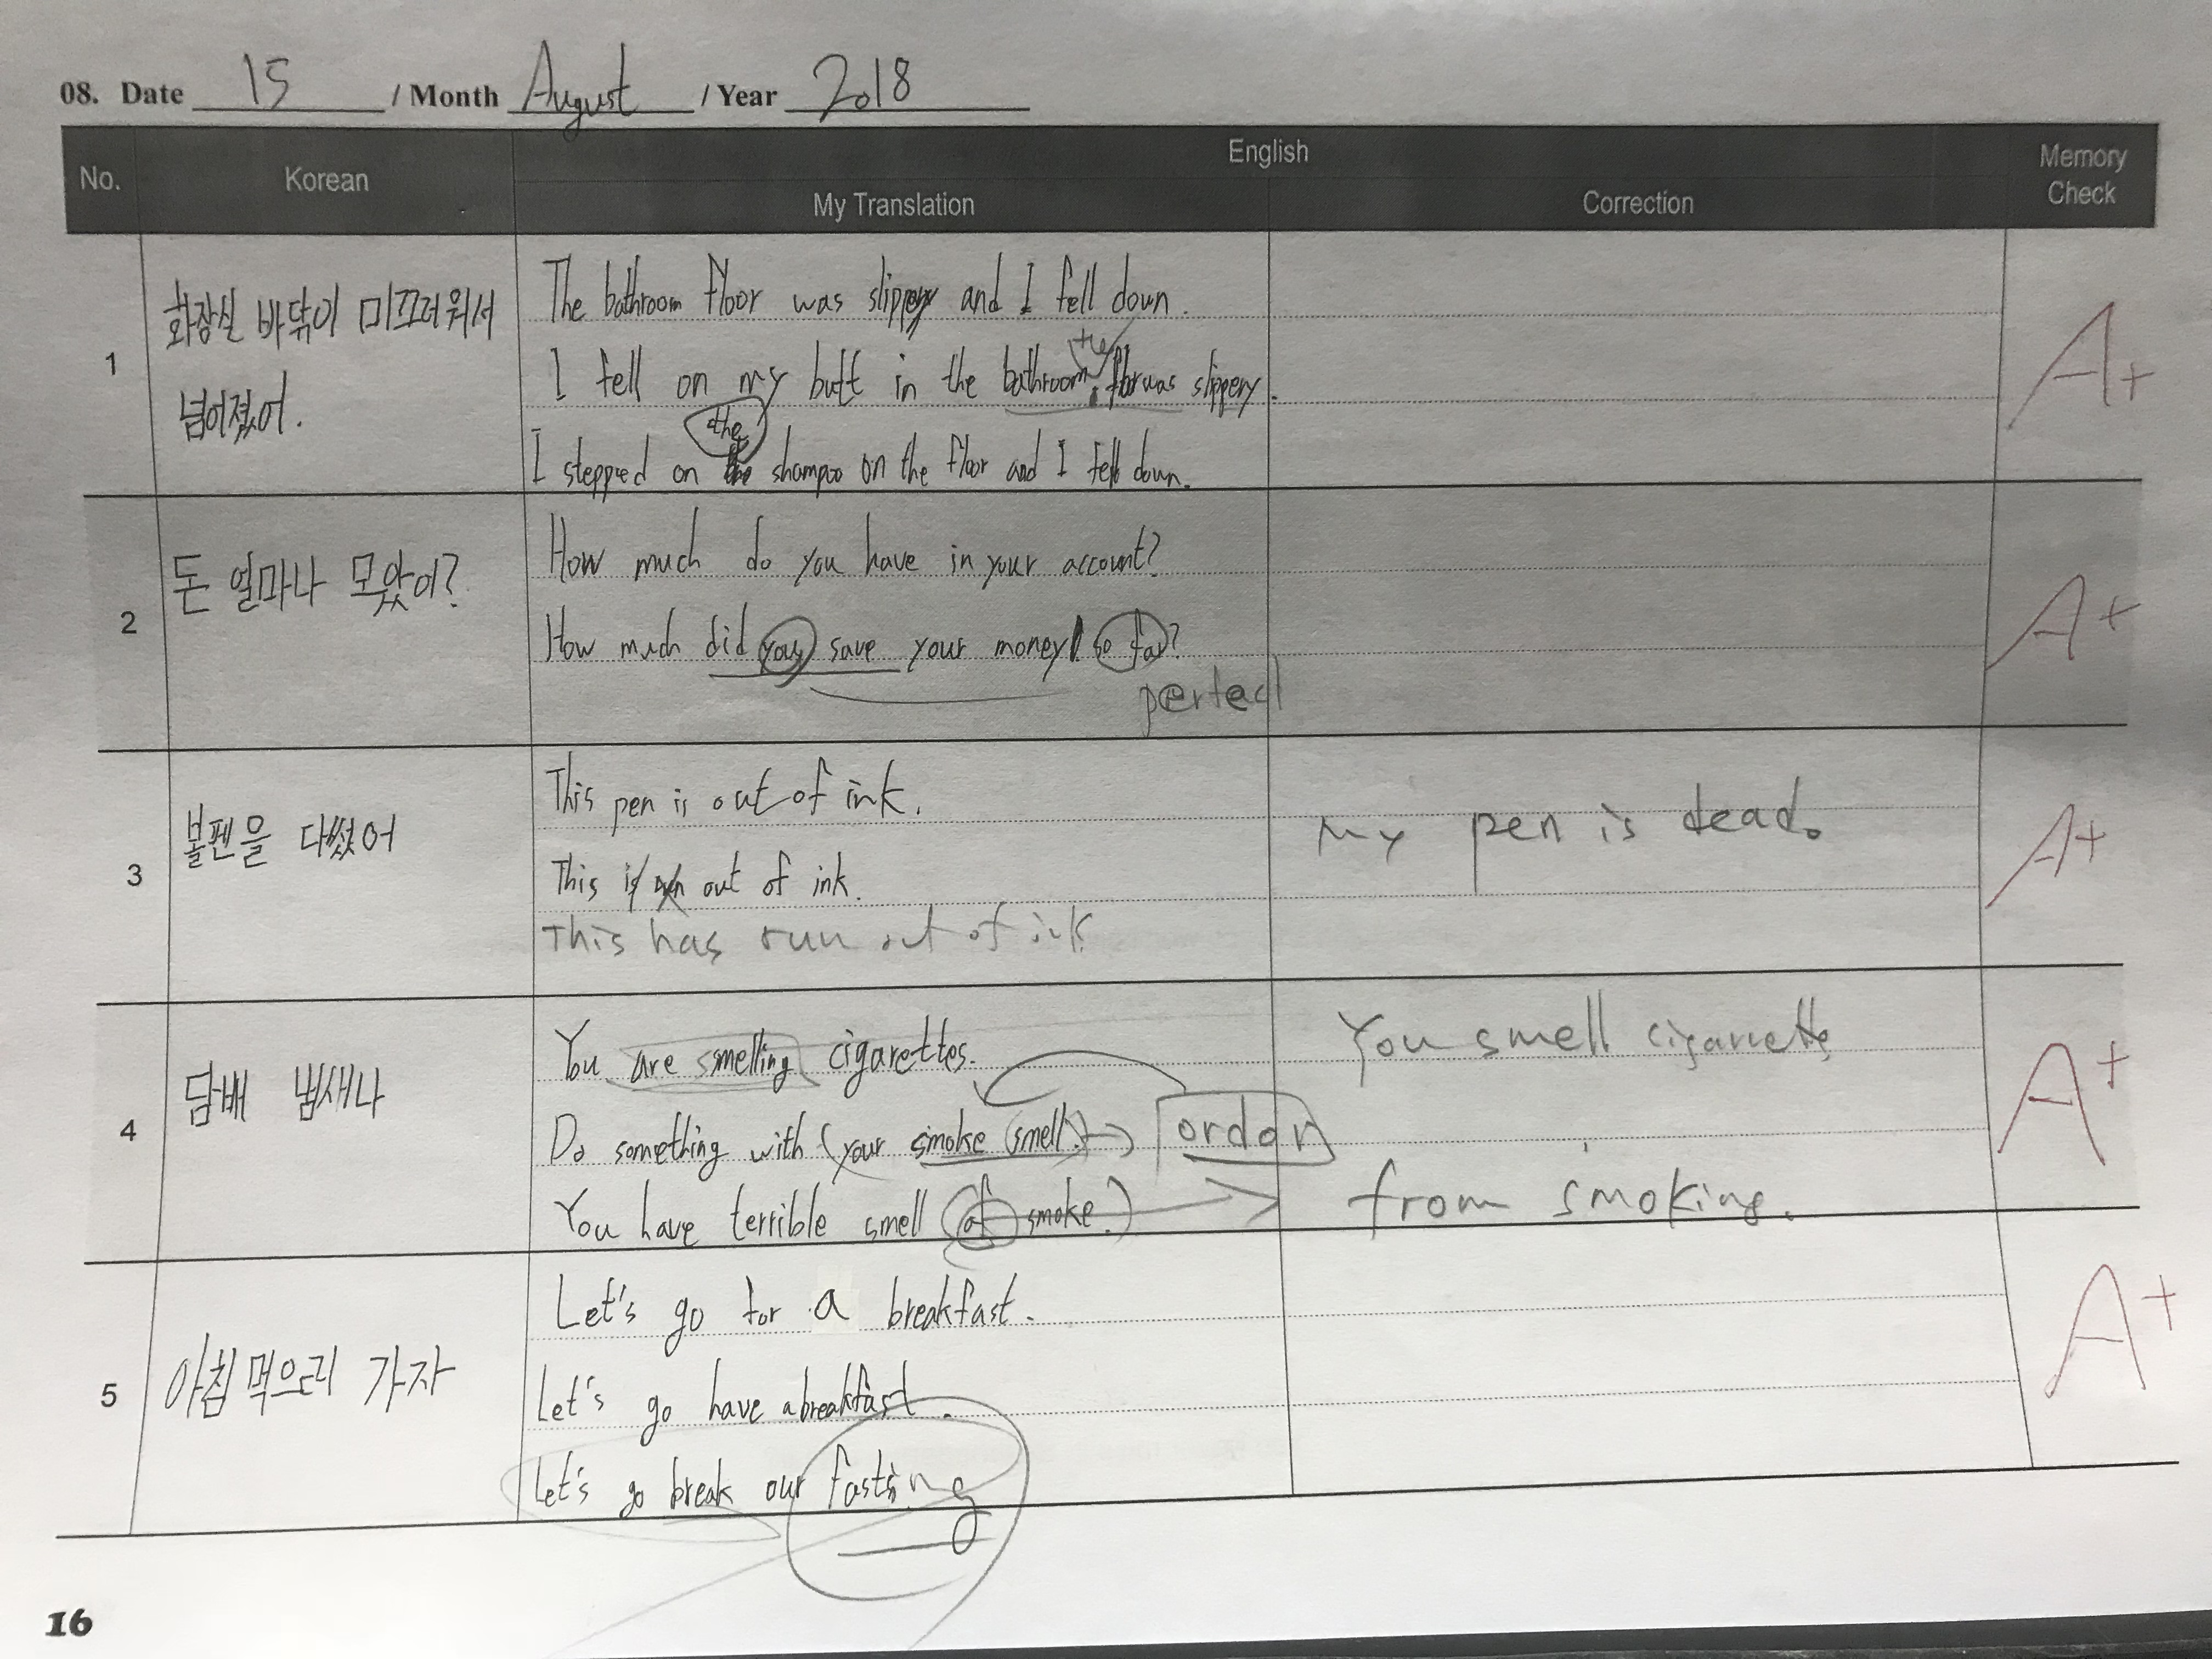 08. Date 15 / Month August / Year 2018
No. Korean English Memory Check
My Translation Correction
1
화장실 바닦이 미끄러워서
넘어졌어.
The bathroom floor was slippery and I fell down.
the
I fell on my butt in the bathroom. floor was slippery.
the
I stepped on the shampoo on the floor and I fell down.
A+
2
돈 얼마나 모았어?
How much do you have in your account?
How much did you save your money so far?
perfect
A+
3
볼펜을 다썼어
This pen is out of ink.
This is out of ink.
This has run out of ink
My pen is dead.
A+
4
담배 냄새나
You are smelling cigarettes.
Do something with (your smoke (smell.)
You have terrible smell (of smoke.)
You smell cigarrette
ordor
from smoking.
A+
5
아침 먹으러 가자
Let's go for a breakfast.
Let's go have a breakfast.
Let's go break our fasting
A+
16